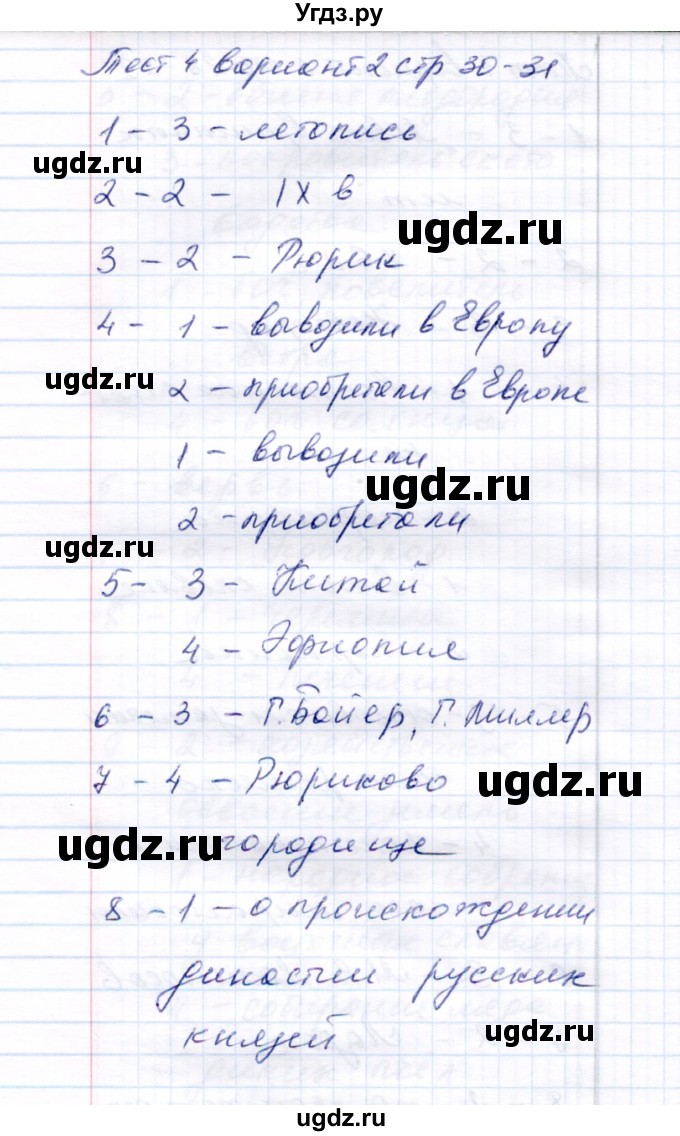 Угдз.ру
Тест 4 вариант 2 стр 30-31
1 - 3 - летопись
ugdz.ru
2 - 2 - IX в
ugdz.ru
3 - 2 - Рюрик
4 - 1 - вывозили в Европу
ugdz.ru
2 - приобретали в Европе
1 - вывозили
ugdz.ru
2 - приобретали
ugdz.ru
5 - 3 - Китай
4 - Эфиопия
6 - 3 - Г. Байер, Г. Миллер
7 - 4 - Рюриково
ugdz.ru
ugdz.ru
городище
8 - 1 - о происхождении
династии русских
князей
ugdz.ru
ugdz.ru